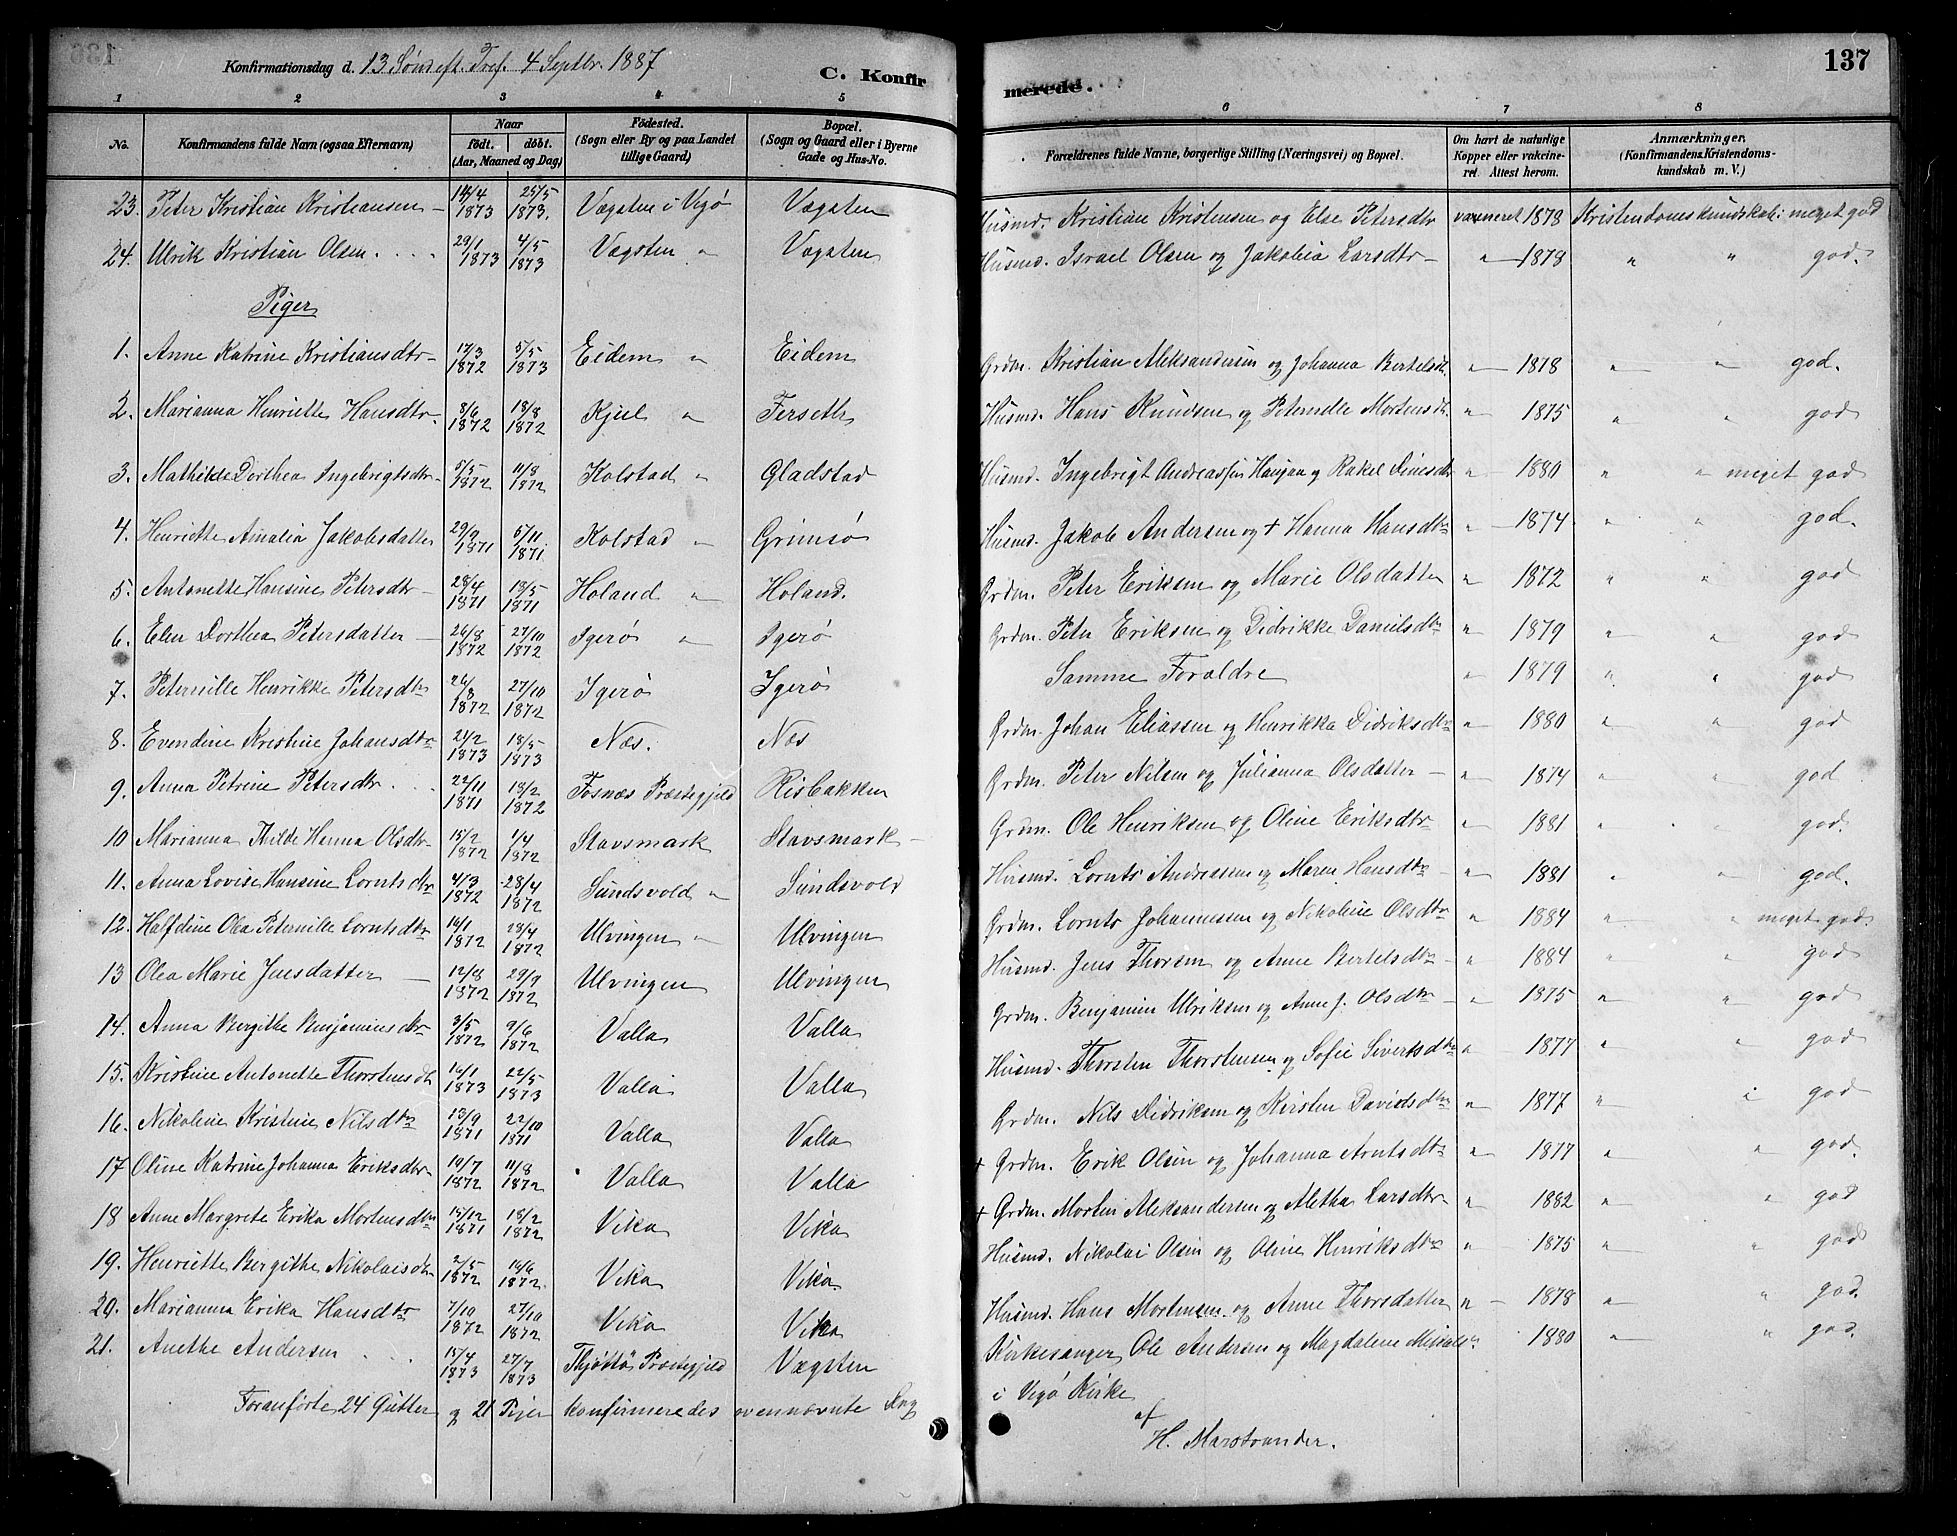 Konfirmationsdag d. 13 Sønd eft. Tref. 4 Septbr. 1887
C. Konfirmerede.
137
1 2 3 4 5 6 7 8
No. | Konfirmandens fulde Navn (ogsaa Efternavn) | Naar født. døbt. (Aar, Maaned og Dag) | Fødested. (Sogn eller By og paa Landet tillige Gaard) | Bopæl. (Sogn og Gaard eller i Byerne Gade og Hus-No. | Forældrenes fulde Navne, borgerlige Stilling (Næringsvei) og Bopæl. | Om havt de naturlige Kopper eller vakcineret. Attest herom. | Anmærkninger, (Konfirmandens Kristendomskundskab m. V.)
23. Peter Kristian Kristiansen 14/4 1873 25/5 1873. Vægsten i Vegø Vægsten Husmd. Kristian Kristensen og Else Petersdtr 1878 Kristendomskundskab: meget god
24. Ulrik Kristian Olsen 29/1 1873 4/5 1873 Vægsten " Vægsten Husmd. Israel Olsen og Jakobia Larsdtr " 1878 " " god.
Piger
1. Anne Katrine Kristiansdtr 17/3 1872 5/5 1873 Eidem " Eidem Grdm. Kristian Aleksandersen og Johanna Bertelsdt. " 1878 " " god.
2. Marianna Henriette Hansdtr 8/6 1872 18/8 1872 Kjul " Ferseth Husmd. Hans Knudsen og Peternille Mortensdt. " 1875 " " god
3. Mathilde Dorthea Ingebrigtsdtr 5/5 1872 11/8 1872 Kolstad " Gladstad Husmd. Ingebrigt Andreassen og Rakel " 1880 " " meget god
4. Henriette Amalia Jakobsdatter 29/9 1871 5/11 1871 Kolstad " Grimsø Husmd. Jakob Andersen og + Hanna Hansdtr " 1874 " " god.
5. Antonette Hansine Petersdtr 28/4 1871 18/5 1871 Holand " Holand. Grdm. Peter Eriksen og Marie Olsdatter " 1872 " " god
6. Elen Dorthea Petersdatter 26/8 1872 27/10 1872 Igerø " Igerø Grdm. Peter Eriksen og Didrikke Danielsdtr " 1879 " " god
7. Peternille Henrikke Petersdtr 26/8 1872 27/10 1872 Igerø Igerø Samme Forældre " 1879 " " god
8. Evendine Kristine Johansdtr 24/2 1873 18/5 1873 Næs. Næs Grdm. Johan Eliassen og Henrikka Didriksdtr " 1880 " " god
9. Anna Petrine Petersdtr 22/11 1871 18/2 1872 Fosnæs Præstegjeld Risbakken Grdm. Peter Nilsen og Julianna Olsdatter " 1874 " " god
10 Marianna Thilde Hanna Olsdtr 15/2 1872 1/4 1872 Stavsmark Stavsmark Grdm. Ole Henriksen og Oline Eriksdtr " 1881 " god.
11. Anna Lovise Hansine Lorntsdtr 4/3 1872 28/4 1872 Sundsvold " Sundsvold Husmd. Lornts Andreassen og Maren Hansdtr " 1881 " " god.
12. Halfdine Olea Peternille Lorntsdtr 16/1 1872 28/4 1872 Ulvingen " Ulvingen Grdm. Lornts Johannessen og Nikoline Olsdtr " 1884 " " meget god
13 Olea Marie Jensdatter 12/8 1872 29/9 1872 Ulvingen Ulvingen Husmd. Jens Thorsen og Anne Bertelsdtr " 1884 " " god
14. Anna Bergithe Benjaminsdtr 3/5 1872 9/6 1872 Valla Valla Grdm. Benjamin Ulriksen og Anne J. Olsdtr " 1875 " " god
15. Kristine Antonette Thorstensdt 16/1 1873 22/5 1873 Valla Valla Husmd. Thorsten Thorstensen og Sofie Sivertsdtr " 1877 " " god
16. Nikoline Kristine Nilsdtr 13/9 1871 22/10 1871 Valla Valla Grdm. Nils Didriksen og Kirsten Davidsdtr " 1877 " " god
17 Oline Katrine Johanna Eriksdtr 10/7 1872 11/8 1872 Valla Valla + Grdm. Erik Olsen og Johanna Arntsdtr " 1877 " " god.
18 Anne Margrete Erika Mortensdtr 15/12 1871 18/2 1872 Vika Vika + Grdm. Morten Aleksandersen og Aletha Larsdtr " 1882 " " god
19. Henriette Bergithe Nikolaisdtr 2/5 1872 16/6 1872. Vika Vika Husmd. Nikolai Olsen og Oline Henriksdtr " 1875 " " god
20. Marianna Erika Hansdtr 7/10 1872 27/10 1872 Vika Vika Husmd. Hans Mortensen og Anne Thorsdatter " 1878 " " god.
21. Anethe Andersen 15/4 1873 27/7 1873 Thjøttø Præstegjeld Vægsten Kirkesanger Ole Andersen og Magdalene " 1880 " " god.
i Vegø Kirke
Foranførte 24 Gutter og 21 Piger konfirmeredes ovennævnte Dag
af
H. Marstrander.